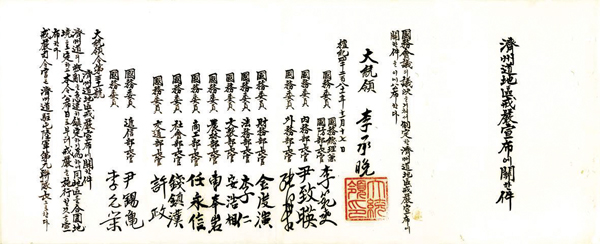 濟州道地區戒嚴宣布에關한件
國務會議의議決을經하여制定한濟州道地區戒嚴宣布에
關한件을이에公布한다
大統領 李承晩
檀紀四二八一年十一月十七日
國務總理兼
國防部長 李範奭
國務委員 內務部長 尹致暎
國務委員 外務部長
國務委員 財務部長 金度演
國務委員 法務部長 李仁
國務委員 文教部長 安浩相
國務委員 農林部長 曺奉岩
國務委員 商工部長 任永信
國務委員 社會部長 錢鎭漢
國務委員 交通部長 許政
國務委員 遞信部長 尹錫龜
國務委員 李允榮
大統領令第三十一號
濟州道地區戒嚴宣布에關한件
濟州道의叛亂을急速히鎭定하기爲하여同地區를合圍地
境으로定하고本令公布日로부터戒嚴을施行할것을宣
布한다
戒嚴司令官은濟州道駐屯陸軍第九聯隊長으로한다